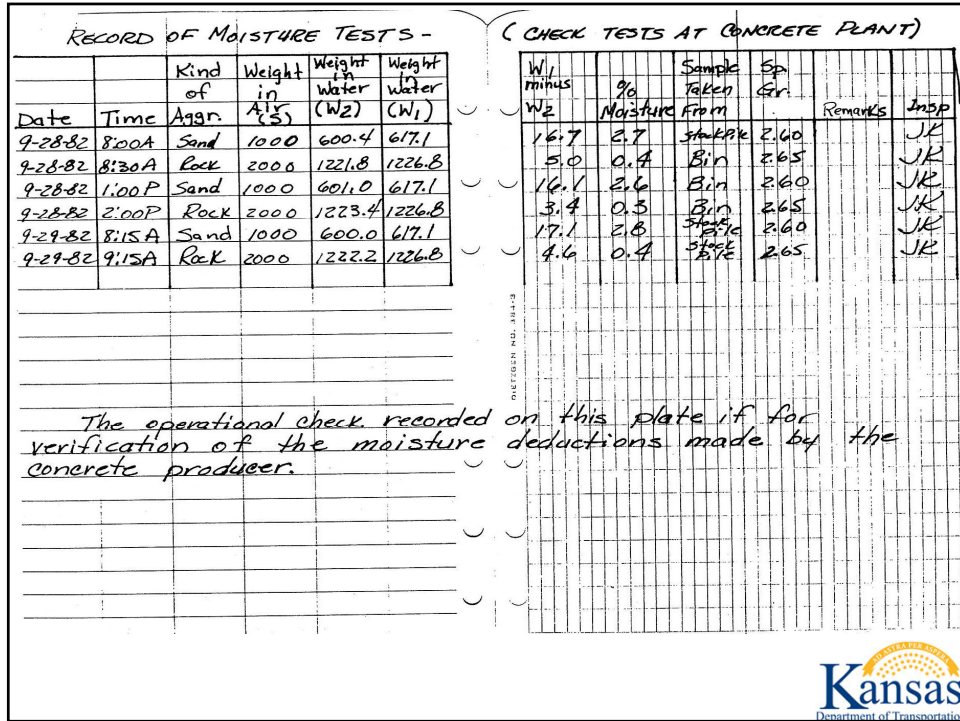 RECORD OF MOISTURE TESTS - ( CHECK TESTS AT CONCRETE PLANT)
Date Time Kind of Aggr. Weight in Air (S) Weight in Water (W2) Weight in Water (W1) W1 minus W2 % Moisture Sample Taken From Sp. Gr. Remarks Insp
9-28-82 8:00A Sand 1000 600.4 617.1 16.7 2.7 StockPile 2.60 JK
9-28-82 8:30A Rock 2000 1221.8 1226.8 5.0 0.4 Bin 2.65 JK
9-28-82 1:00P Sand 1000 601.0 617.1 16.1 2.6 Bin 2.60 JK
9-28-82 2:00P Rock 2000 1223.4 1226.8 3.4 0.3 Bin 2.65 JK
9-29-82 8:15A Sand 1000 600.0 617.1 17.1 2.8 Stock pile 2.60 JK
9-29-82 9:15A Rock 2000 1222.2 1226.8 4.6 0.4 Stock pile 2.65 JK
The operational check recorded on this plate if for
verification of the moisture deductions made by the
concrete producer.
AD ASTRA PER ASPERA
Kansas
Department of Transportation